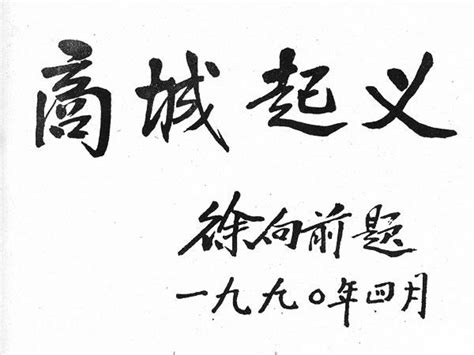 商城起义
徐向前题
一九九〇年四月